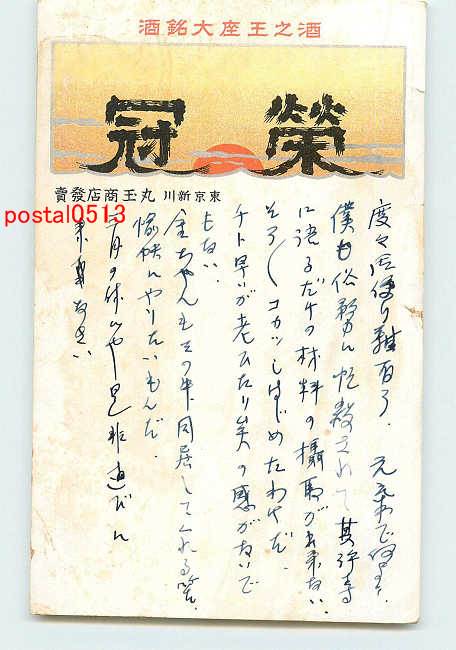 酒銘大座王之酒
榮冠
東京新川 丸玉商店發賣
postal0513
度々お便り難有う. 元気で何より.
僕も俗務に忙殺されて
に語るだけの材料の摂取が出来ない.
そろ〳〵コカツしはじめたわけだ.
チト早いが老ひたり矣の感がないで
もない.
金ちゃんも其の中同居してくれる筈.
愉快にやりたいもんだ.
月の休みや是非遊びに
来なさい